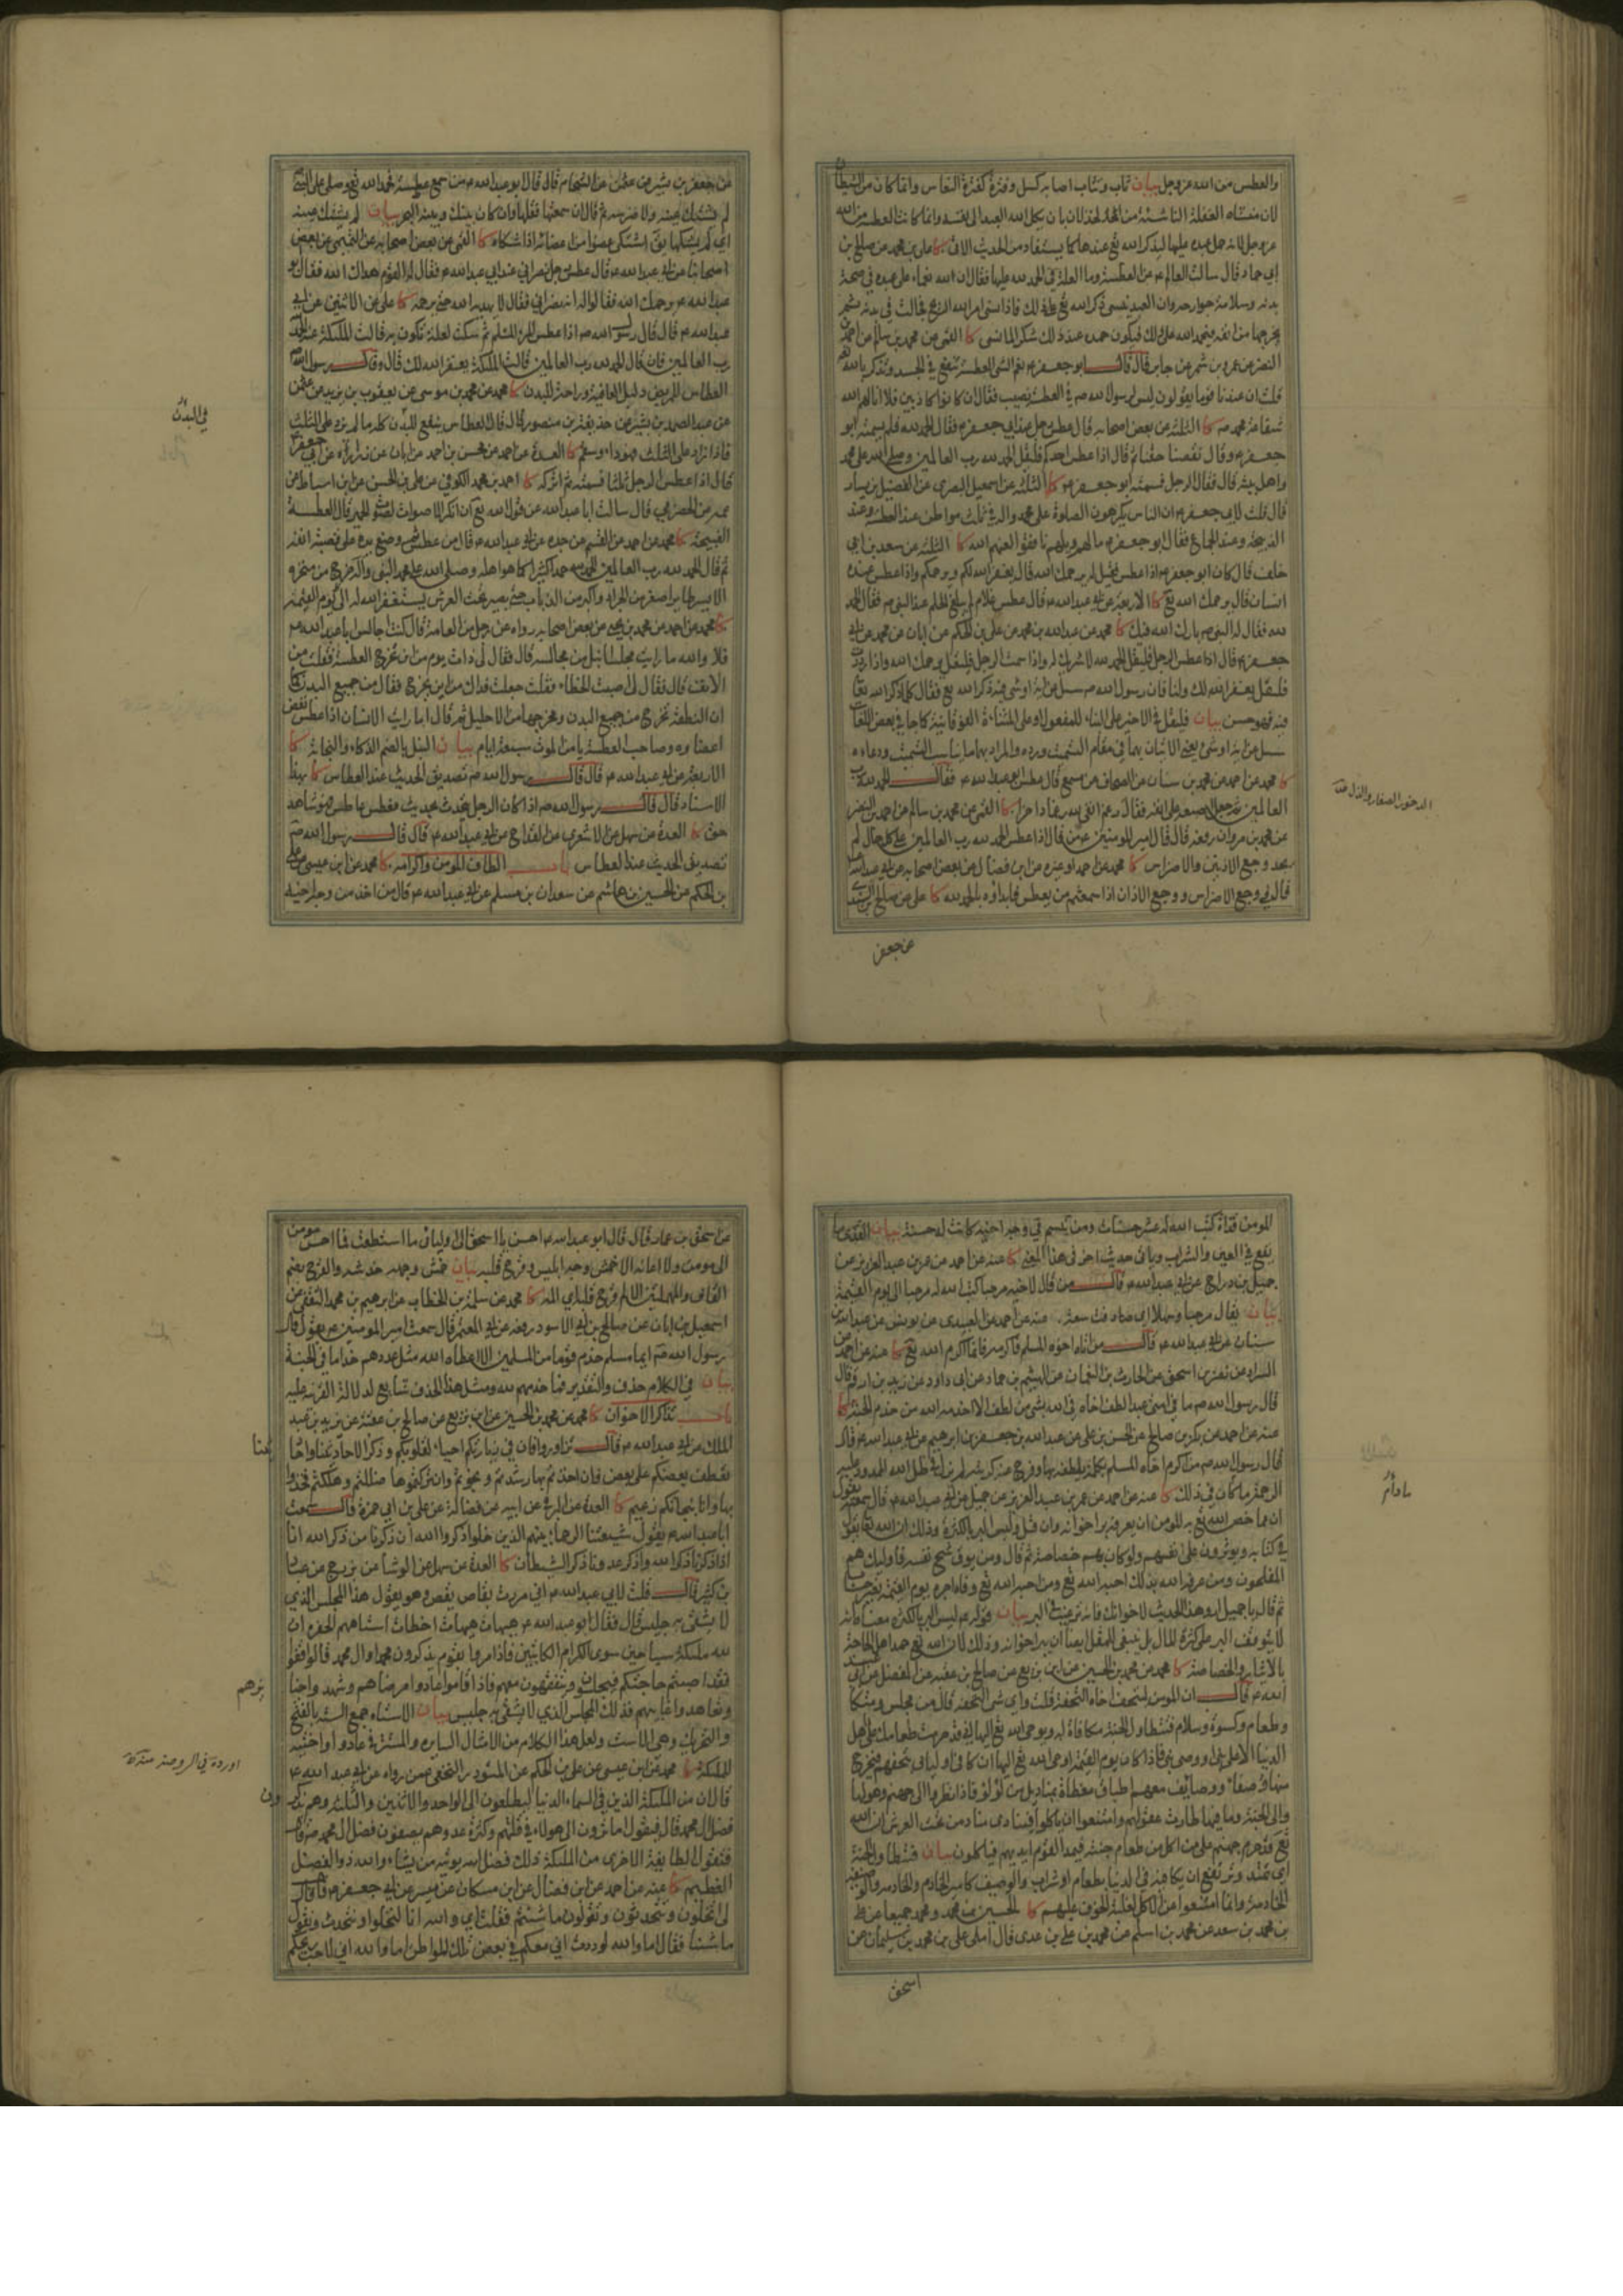 والعطس من الله عز وجل بيان تثاب وتثأب اصابه كسل وفترة كفترة النعاس وانما كان من الشيطان
لان منشأه الغفلة الناشئة من
عز وجل لانه حمل عبده عليها ليذكر الله تع عندها كما يستفاد من الحديث الاتي كا علي بن محمد عن صالح بن
ابي حماد قال سالت العالم ع عن العطسة وما العلة في الحمد لله عليها فقال ان الله نعماء على عبده في صحة
بدنه وسلامة جوارحه وان العبد ينسى ذكر الله تع على ذلك فاذا نسي امر الله الريح فجالت في بدنه ثم
يخرجها من انفه فيحمد الله على ذلك فيكون حمده عند ذلك شكرا لما نسي كا القمي عن محمد بن سالم عن احمد بن
النضر عن عمرو بن شمر عن جابر قال قال ابو جعفر ع نعم الشئ العطسة تنفع في الجسد وتذكر بالله
قلت ان عندنا قوما يقولون ليس لرسول الله ص في العطسة نصيب فقال ان كانوا كاذبين فلا انالهم الله
شفاعة محمد ص كا الثلثة عن بعض اصحابه قال عطس رجل عند ابي جعفر ع فقال الحمد لله فلم يسمته ابو
جعفر ع وقال نقصنا حقنا ثم قال اذا عطس احدكم فليقل الحمد لله رب العالمين وصلى الله على محمد
واهل بيته قال فقال الرجل فسمته ابو جعفر ع كا الثلثة عن اسمعيل البصري عن الفضيل بن يسار
قال قلت لابي جعفر ع ان الناس يكرهون الصلوة على محمد واله في ثلث مواطن عند العطسة وعند
الذبيحة وعند الجماع فقال ابو جعفر ع ما لهم ويلهم نافقوا لعنهم الله كا الثلثة عن سعد بن ابي
خلف قال كان ابو جعفر ع اذا عطس فقيل له يرحمك الله قال يغفر الله لكم ويرحمكم واذا عطس عنده
انسان قال يرحمك الله تع كا الاربعة عن ابي عبد الله ع قال عطس غلام لم يبلغ الحلم عند النبي ص فقال الحمد
لله فقال له النبي ص بارك الله فيك كا محمد عن عبد الله بن محمد عن علي بن الحكم عن ابان عن محمد عن ابي
جعفر ع قال اذا عطس الرجل فليقل الحمد لله لا شريك له واذا سمت الرجل فليقل يرحمك الله واذا رددت
فليقل يغفر الله لك ولنا فان رسول الله ص سئل عن اية او شئ فيه ذكر الله تع فقال كلما ذكر الله تعا
فيه فهو حسن بيان
كا محمد عن احمد عن محمد بن سنان عن
العالمين
عن محمد بن مروان رفعه قال قال امير المؤمنين ع من قال اذا عطس الحمد لله رب العالمين على كل حال لم
يجد وجع الاذنين والاضراس كا محمد عن احمد او غيره عن ابن فضال عن بعض اصحابه عن ابي عبد الله
قال في وجع الاضراس ووجع الاذان اذا سمعتم من يعطس فابدؤه بالحمد لله كا علي عن صالح بن السندي
عن جعفر
عن جعفر بن بشير عن عثمن عن الشحام قال قال ابو عبد الله ع من سمع عطسة فحمد الله تع وصلى على النبي ص
لم يشتك عينه ولا ضرسه ثم قال ان سمعتها فقلها وان كان بينك وبينه البحر بيان لم يشتك عينه
اي لم يشكها يق اشتكى عضوا من اعضائه اذا شكاه كا القمي عن بعض اصحابه عن التميمي عن بعض
اصحابنا عن ابي عبد الله ع قال عطس رجل نصراني عند ابي عبد الله ع فقال له القوم هداك الله فقال ابو
عبد الله ع يرحمك الله فقالوا له انه نصراني فقال لا يهديه الله حتى يرحمه كا علي عن الاثنين عن ابي
عبد الله ع قال قال رسول الله ص اذا عطس المرء المسلم ثم سكت لعلة تكون به قالت الملئكة عنه الحمد لله
رب العالمين فان قال الحمد لله رب العالمين قالت الملئكة يغفر الله لك قال وقال رسول الله ص
العطاس للمريض دليل العافية وراحة للبدن كا محمد عن محمد بن موسى عن يعقوب بن يزيد عن عثمن
عن عبد الصمد بن بشير عن حذيفة بن منصور قال قال العطاس ينفع للبدن كله ما لم يزد على الثلث
فاذا زاد على الثلث فهو داء وسقم كا العدة عن احمد عن محسن بن احمد عن ابان عن زرارة عن ابي جعفر ع
قال اذا عطس الرجل ثلثا فسمته ثم اتركه كا احمد بن محمد الكوفي عن علي بن الحسن عن ابن اسباط عن
عمه عن الحضرمي قال سالت ابا عبد الله عن قول الله تع ان انكر الاصوات لصوت الحمير قال العطسة
القبيحة كا محمد عن احمد عن القسم عن جده عن ابي عبد الله ع قال من عطس ثم وضع يده على قصبة انفه
ثم قال الحمد لله رب العالمين الحمد لله حمدا كثيرا كما هو اهله وصلى الله على محمد النبي واله خرج من منخره
الايسر طاير اصغر من الجراد واكبر من الذباب حتى يصير تحت العرش يستغفر الله له الى يوم القيمة
كا محمد عن احمد عن محمد بن يحيى عن بعض اصحابه رواه عن رجل من العامة قال كنت اجالس ابا عبد الله ع
فلا والله ما رايت مجلسا انبل من مجالسه قال فقال لي ذات يوم من اين تخرج العطسة فقلت من
الانف قال فقال لي اصبت الخطاء فقلت جعلت فداك من اين تخرج فقال من جميع البدن كما
ان النطفة تخرج من جميع البدن ومخرجها من الاحليل ثم قال اما رايت الانسان اذا عطس نفض
اعضاؤه وصاحب العطسة يامن الموت سبعة ايام بيان النبل بالضم الذكاء والنجابة كا
الاربعة عن ابي عبد الله ع قال قال رسول الله ص تصديق الحديث عند العطاس كا بهذا
الاسناد قال قال رسول الله ص اذا كان الرجل يتحدث بحديث فعطس عاطس فهو شاهد
حق كا العدة عن سهل عن الاشعري عن القداح عن ابي عبد الله ع قال قال رسول الله ص
تصديق الحديث عند العطاس باب الطاف المؤمن واكرامه كا محمد عن ابن عيسى عن علي
بن الحكم عن الحسين بن هاشم عن سعدان بن مسلم عن ابي عبد الله ع قال من اخذ من وجه اخيه
في البدن
المؤمن قذاة كتب الله له عشر حسنات ومن تبسم في وجه اخيه كانت له حسنة بيان القذى ما
يقع في العين والشراب وياتي حديث اخر في هذا المعنى كا عنه عن احمد عن عمر بن عبد العزيز عن
جميل بن دراج عن ابي عبد الله ع قال من قال لاخيه مرحبا كتب الله له مرحبا الى يوم القيمة
بيان يقال مرحبا وسهلا اي صادفت سعة عنه عن احمد عن العبيدي عن يونس عن عبد الله بن
سنان عن ابي عبد الله ع قال من اتاه اخوه المسلم فاكرمه فانما اكرم الله تع كا عنه عن احمد عن
اسحق عن الحارث بن النعمان عن الهيثم بن حماد عن ابي داود عن زيد بن ارقم قال
قال رسول الله ص ما في امتي عبد الطف اخاه في الله بشئ من لطف الا اخدمه الله من خدم الجنة كا
عنه عن احمد عن بكر بن صالح عن الحسن بن علي عن عبد الله بن جعفر بن ابرهيم عن ابي عبد الله ع قال
قال رسول الله ص من اكرم اخاه المسلم بكلمة يلطفه بها وفرج عنه كربته لم يزل في ظل الله الممدود عليه
الرحمة ما كان في ذلك كا عنه عن احمد عن عمر بن عبد العزيز عن جميل عن ابي عبد الله ع قال سمعته يقول
ان مما خص الله تع به المؤمن ان يعرفه بر اخوانه وان قل وليس البر بالكثرة وذلك ان الله تعا يقول
في كتابه ويؤثرون على انفسهم ولو كان بهم خصاصة ثم قال ومن يوق شح نفسه فاولئك هم
المفلحون ومن عرفه الله بذلك احبه الله تع ومن احبه الله تع وفاه اجره يوم القيمة بغير حساب
ثم قال يا جميل ارو هذا الحديث لاخوانك فانه ترغيب في البر بيان قوله ع ليس البر بالكثرة معناه انه
لا يتوقف البر على كثرة المال بل ينبغي للمقل ايضا ان يبر اخوانه وذلك لان الله تع حمد اهل الحاجة
بالايثار والخصاصة كا محمد عن محمد بن الحسين عن ابن بزيع عن صالح بن عقبة عن المفضل عن ابي عبد
الله ع قال ان المؤمن ليتحف اخاه التحفة قلت واي شئ التحفة قال من مجلس ومتكا
وطعام وكسوة وسلام فتطاول الجنة مكافاة له ويوحي الله تع اليها اني قد حرمت طعامك على اهل
الدنيا الا على نبي او وصي نبي فاذا كان يوم القيمة اوحى الله تع اليها ان كافي اوليائي بتحفهم فيخرج
منها وصفاء ووصائف معهم اطباق مغطاة بمناديل من لؤلؤ فاذا نظروا الى جهنم وهولها
والى الجنة وما فيها طارت عقولهم وامتنعوا ان ياكلوا فينادي مناد من تحت العرش ان الله
تع قد حرم جهنم على من اكل من طعام جنته فيمد القوم ايديهم فياكلون بيان فتطاول الجنة
اي تمتد وترتفع ان يكافئه في الدنيا بطعام او شراب والوصيف كامير الخادم والخادمة
وانما امتنعوا من الاكل لغلبة الخوف عليهم كا الحسين بن محمد ومحمد جميعا عن علي
بن محمد بن سعد عن محمد بن اسلم عن محمد بن علي بن عدي قال املى علي بن محمد بن سليمان عن
اسحق
عن اسحق بن عمار قال قال ابو عبد الله ع احسن يا اسحق الى اوليائي ما استطعت فما احسن مؤمن
الى مؤمن ولا اعانه الا خمش وجه ابليس وقرح قلبه بيان خمش وجهه خدشه والقرح بضم
القاف والمهملتين الالم وقرح قلبه اي المه كا محمد عن سلمة بن الخطاب عن ابرهيم بن محمد الثقفي عن
اسمعيل بن ابان عن صالح بن ابي الاسود رفعه عن ابي المعتمر قال سمعت امير المؤمنين ع يقول قال
رسول الله ص ايما مسلم خدم قوما من المسلمين الا اعطاه الله مثل عددهم خداما في الجنة
بيان في الكلام حذف والتقدير فما خدمهم ومثل هذا الحذف شايع لدلالة القرينة عليه
باب تذاكر الاخوان كا محمد عن محمد بن الحسين عن ابن بزيع عن صالح بن عقبة عن يزيد بن عبد
الملك عن ابي عبد الله ع قال تزاوروا فان في زيارتكم احياء لقلوبكم وذكرا لاحاديثنا واحاديثنا
تعطف بعضكم على بعض فان اخذتم بها رشدتم ونجوتم وان تركتموها ضللتم وهلكتم فخذوا
بها وانا بنجاتكم زعيم كا العدة عن البرقي عن ابيه عن فضالة عن علي بن ابي حمزة قال سمعت
ابا عبد الله ع يقول شيعتنا الرحماء بينهم الذين اذا خلوا ذكروا الله ان ذكرنا من ذكر الله انا
اذا ذكرنا ذكر الله واذا ذكر عدونا ذكر الشيطان كا العدة عن سهل عن الوشا عن بزرج عن عباد
بن كثير قال قلت لابي عبد الله ع اني مررت بقاص يقص وهو يقول هذا المجلس الذي
لا يشقى به جليس قال فقال ابو عبد الله ع هيهات هيهات اخطات استاههم الحفرة ان
لله ملئكة سياحين سوى الكرام الكاتبين فاذا مروا بقوم يذكرون محمدا وال محمد قالوا قفوا
فقد اصبتم حاجتكم فيجلسون فيتفقهون معهم فاذا قاموا عادوا مرضاهم وشهدوا جنايزهم
وتعاهدوا غايبهم فذلك المجلس الذي لا يشقى به جليس بيان الاستاه جمع الستة بالفتح
والتحريك وهي الاست ولعل هذا الكلام من الامثال السايرة
للملئكة كا محمد عن ابن عيسى عن علي بن الحكم عن المستورد النخعي عمن رواه عن ابي عبد الله ع
قال ان من الملئكة الذين في السماء الدنيا ليطلعون الى الواحد والاثنين والثلثة وهم يذكرون
فضل ال محمد قال فيقول اما ترون الى هولاء في قلتهم وكثرة عدوهم يصفون فضل ال محمد ص قال
فتقول الطايفة الاخرى من الملئكة ذلك فضل الله يؤتيه من يشاء والله ذو الفضل
العظيم كا عنه عن احمد عن ابن فضال عن ابن مسكان عن ميسر عن ابي جعفر ع قال قال
لي اتخلون وتتحدثون وتقولون ما شئتم فقلت اي والله انا لنخلوا ونتحدث ونقول
ما شئنا فقال اما والله لوددت اني معكم في بعض تلك المواطن اما والله اني لاحب ريحكم